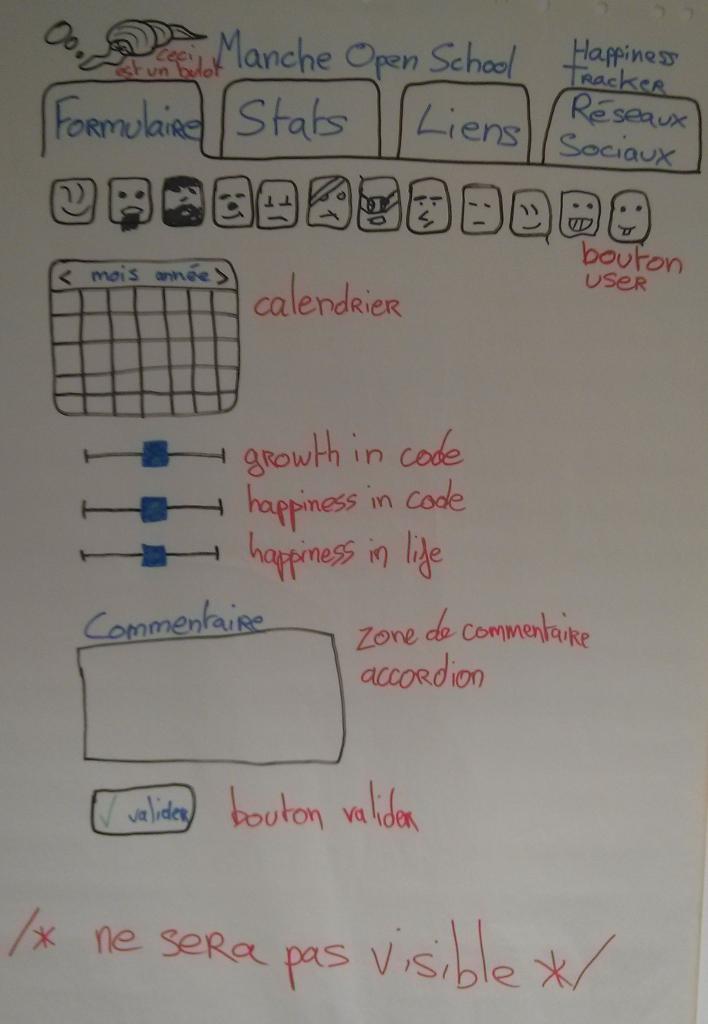 ceci
est un bulot
Manche Open School
Happiness
tracker
Formulaire
Stats
Liens
Réseaux
Sociaux
bouton
user
< mois année >
calendrier
growth in code
happiness in code
happiness in life
Commentaire
zone de commentaire
accordion
√ valider
bouton valider
/* ne sera pas visible */